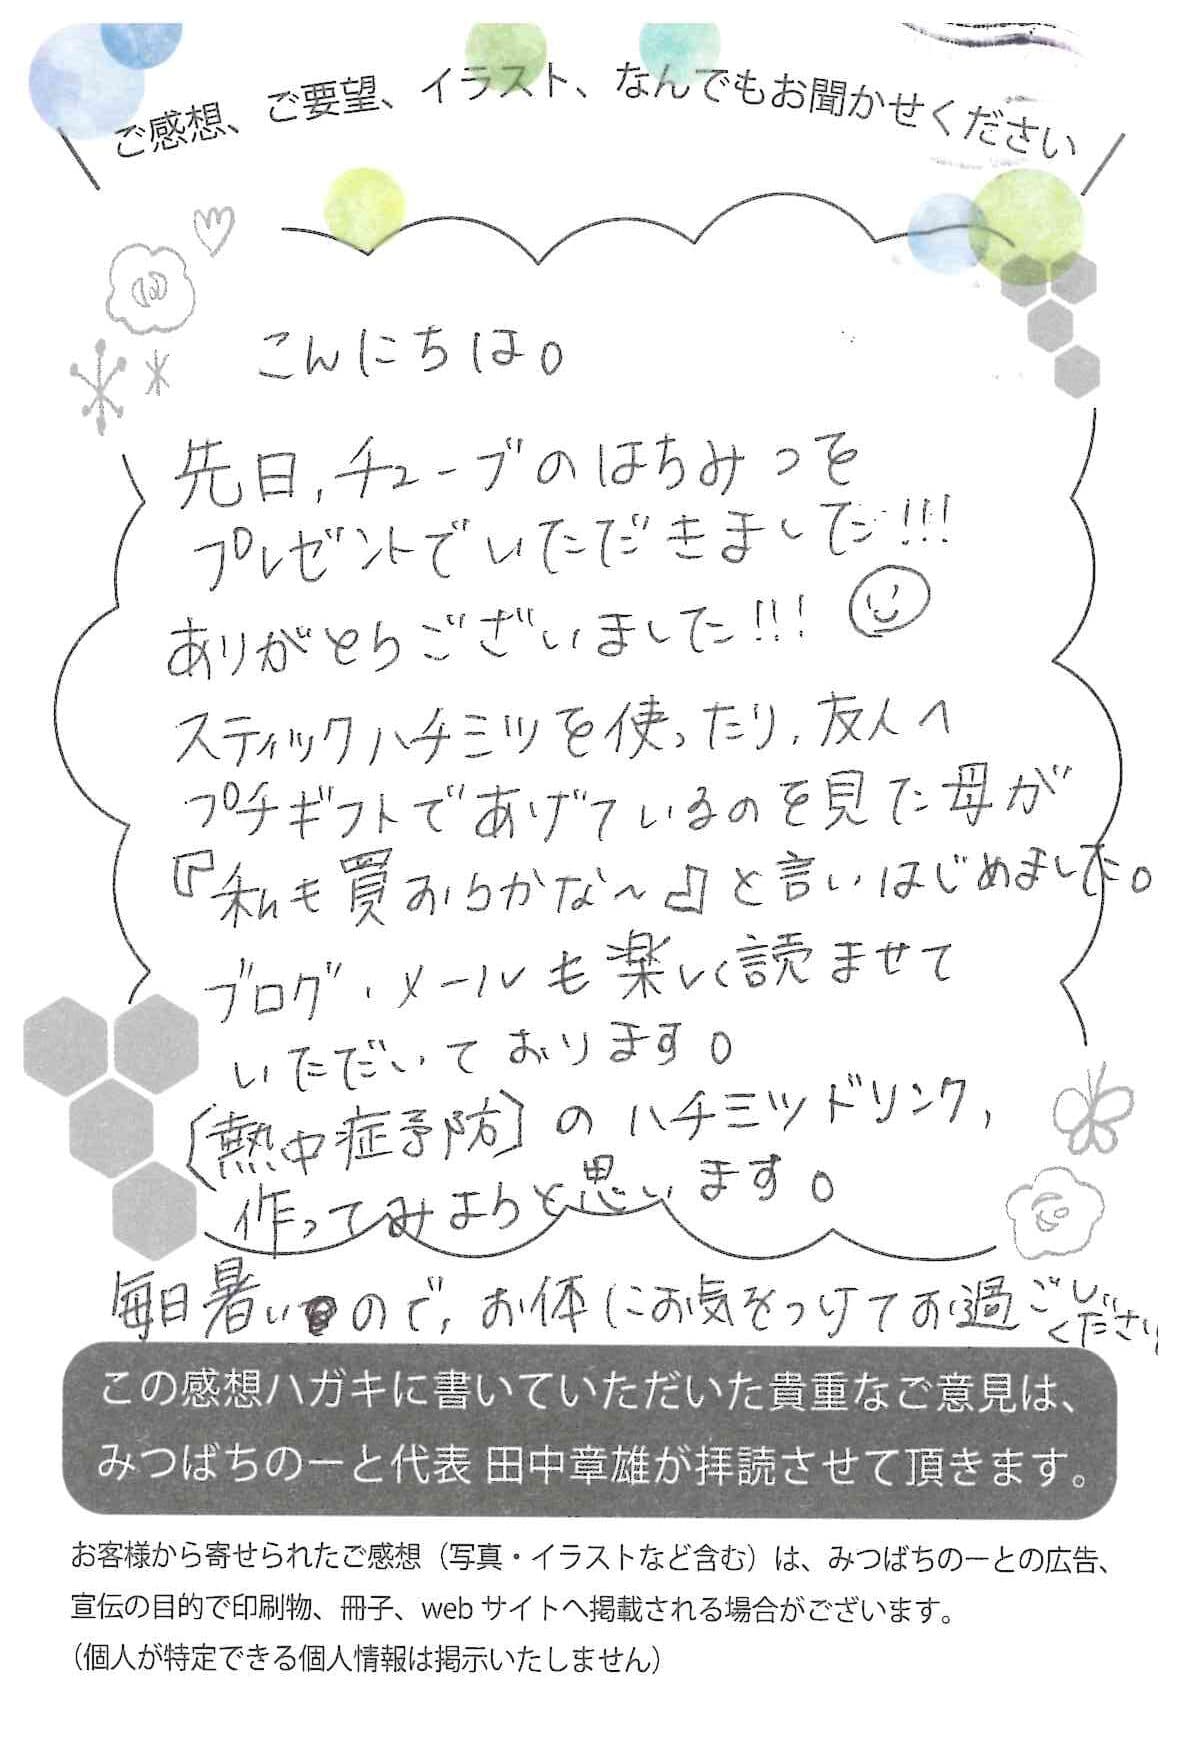 ご感想、ご要望、イラスト、なんでもお聞かせください
こんにちは。
先日,チューブのはちみつを
プレゼントでいただきました!!!
ありがとうございました!!!
スティックハチミツを使ったり,友人へ
プチギフトであげているのを見た母が
『私も買おうかな〜』と言いはじめました。
ブログ・メールも楽しく読ませて
いただいております。
〔熱中症予防〕のハチミツドリンク,
作ってみようと思います。
毎日暑いので,お体にお気をつけてお過ごし
ください
この感想ハガキに書いていただいた貴重なご意見は、
みつばちのーと代表 田中章雄が拝読させて頂きます。
お客様から寄せられたご感想（写真・イラストなど含む）は、みつばちのーとの広告、
宣伝の目的で印刷物、冊子、web サイトへ掲載される場合がございます。
（個人が特定できる個人情報は掲示いたしません）